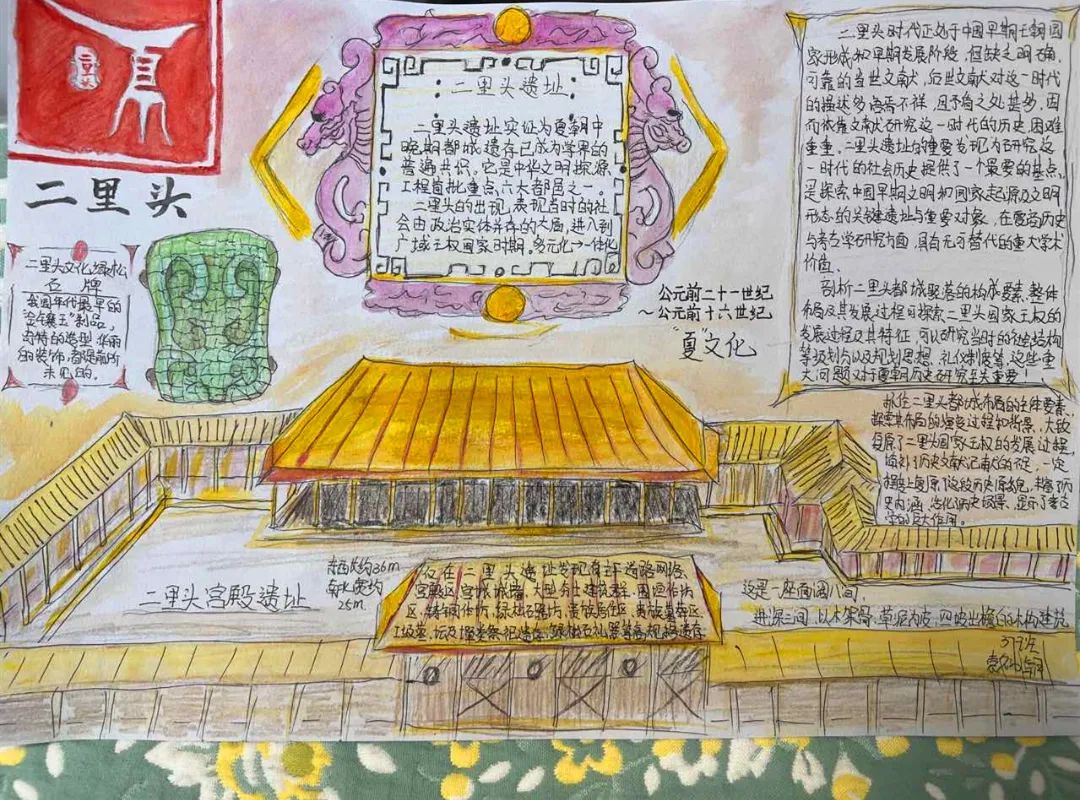 二里头
二里头
二里头遗址
二里头遗址实证为夏朝中
晚期都城遗存已成为学界的
普遍共识。它是中华文明探源
工程首批重点六大都邑之一。
二里头的出现，表现当时的社
会由政治实体并存的大局，进入到
广域王权国家时期。多元化→一体化
二里头文化绿松
石 牌
我国年代最早的
"金镶玉"制品，
奇特的造型，华丽
的装饰，都是前所
未见的。
公元前二十一世纪
～公元前十六世纪
"夏"文化
二里头时代正处于中国早期王朝国
家形成和早期发展阶段，但缺乏明确、
可靠的当世文献，后世文献对这一时代
的描述多语焉不详，且矛盾之处甚多，因
而依靠文献研究这一时代的历史，困难
重重。二里头遗址的重要发现为研究这
一时代的社会历史提供了一个最要的基点，
是探索中国早期文明和国家起源及文明
形态的关键遗址与重要对象，在夏商历史
与考古学研究方面，具有无可替代的重大学术
价值。
剖析二里头都城聚落的构成要素、整体
布局及其发展过程可探索二里头国家王权的
发展过程及其特征，可以研究当时的社会结构
等级划分以及规划思想、礼仪制度等，这些重
大问题对于夏朝历史研究至关重要！
抓住二里头都城布局的主体要素，
探索其布局的演变过程和背景，大致
复原了二里头国家王权的发展过程，
填补了历史文献记载的不足，一定
程度上复原了这段历史原貌，丰富了历
史内涵，活化历史场景，显示了考古
学的巨大作用。
二里头宫殿遗址
东西长约36m
南北宽约
25m.
仅在二里头遗址发现有主干道路网络、
宫殿区、宫城城墙、大型夯土建筑群、围垣作坊
区、铸铜作坊、绿松石器坊、贵族居住区、贵族墓葬区
这是一座面阔八间，
进深三间，以木架骨，草泥为皮，四坡出檐的木构建筑